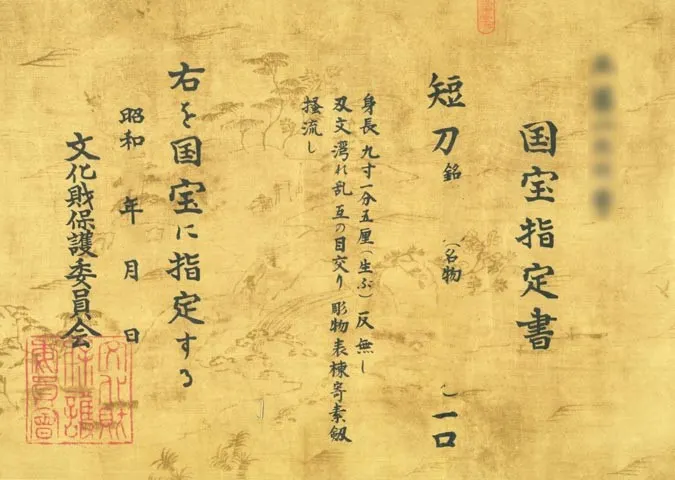 国宝指定書
短刀 銘 (名物 ) 一口
身長 九寸一分五厘(生ぶ)反 無し
刃文 湾れ乱 互の目交り 彫物 表棟寄素剱
掻流し
右を国宝に指定する
昭和 年 月 日
文化財保護委員会
文化財保護委員會